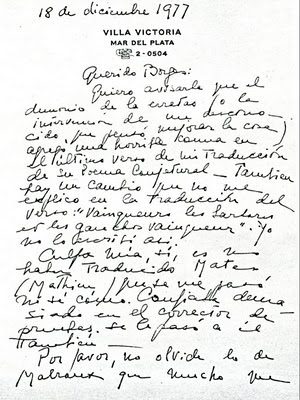 18 de diciembre 1977
VILLA VICTORIA
MAR DEL PLATA
2-0504
Querido Borges:
Quiero avisarle que el
demonio de la erratas (o la
intervención de un descono-
cido, que pensó mejorar la cosa)
agregó una horrible comma en
el último verso de mi traducción
de su Poema Conjetural — También
hay un cambio que no me
explico en la traducción del
verso: "Vainqueurs les barbares
et les gauchos vainqueurs". Yo
no lo escribí así.
Culpa mía, sí, es no
haber traducido Mates
(Mathieu) pues se me pasó
no sé cómo. Confiaba dema-
siado en el corrector de
pruebas. Se le pasó a él
también —
Por favor, no olvide lo de
Malraux que mucho me